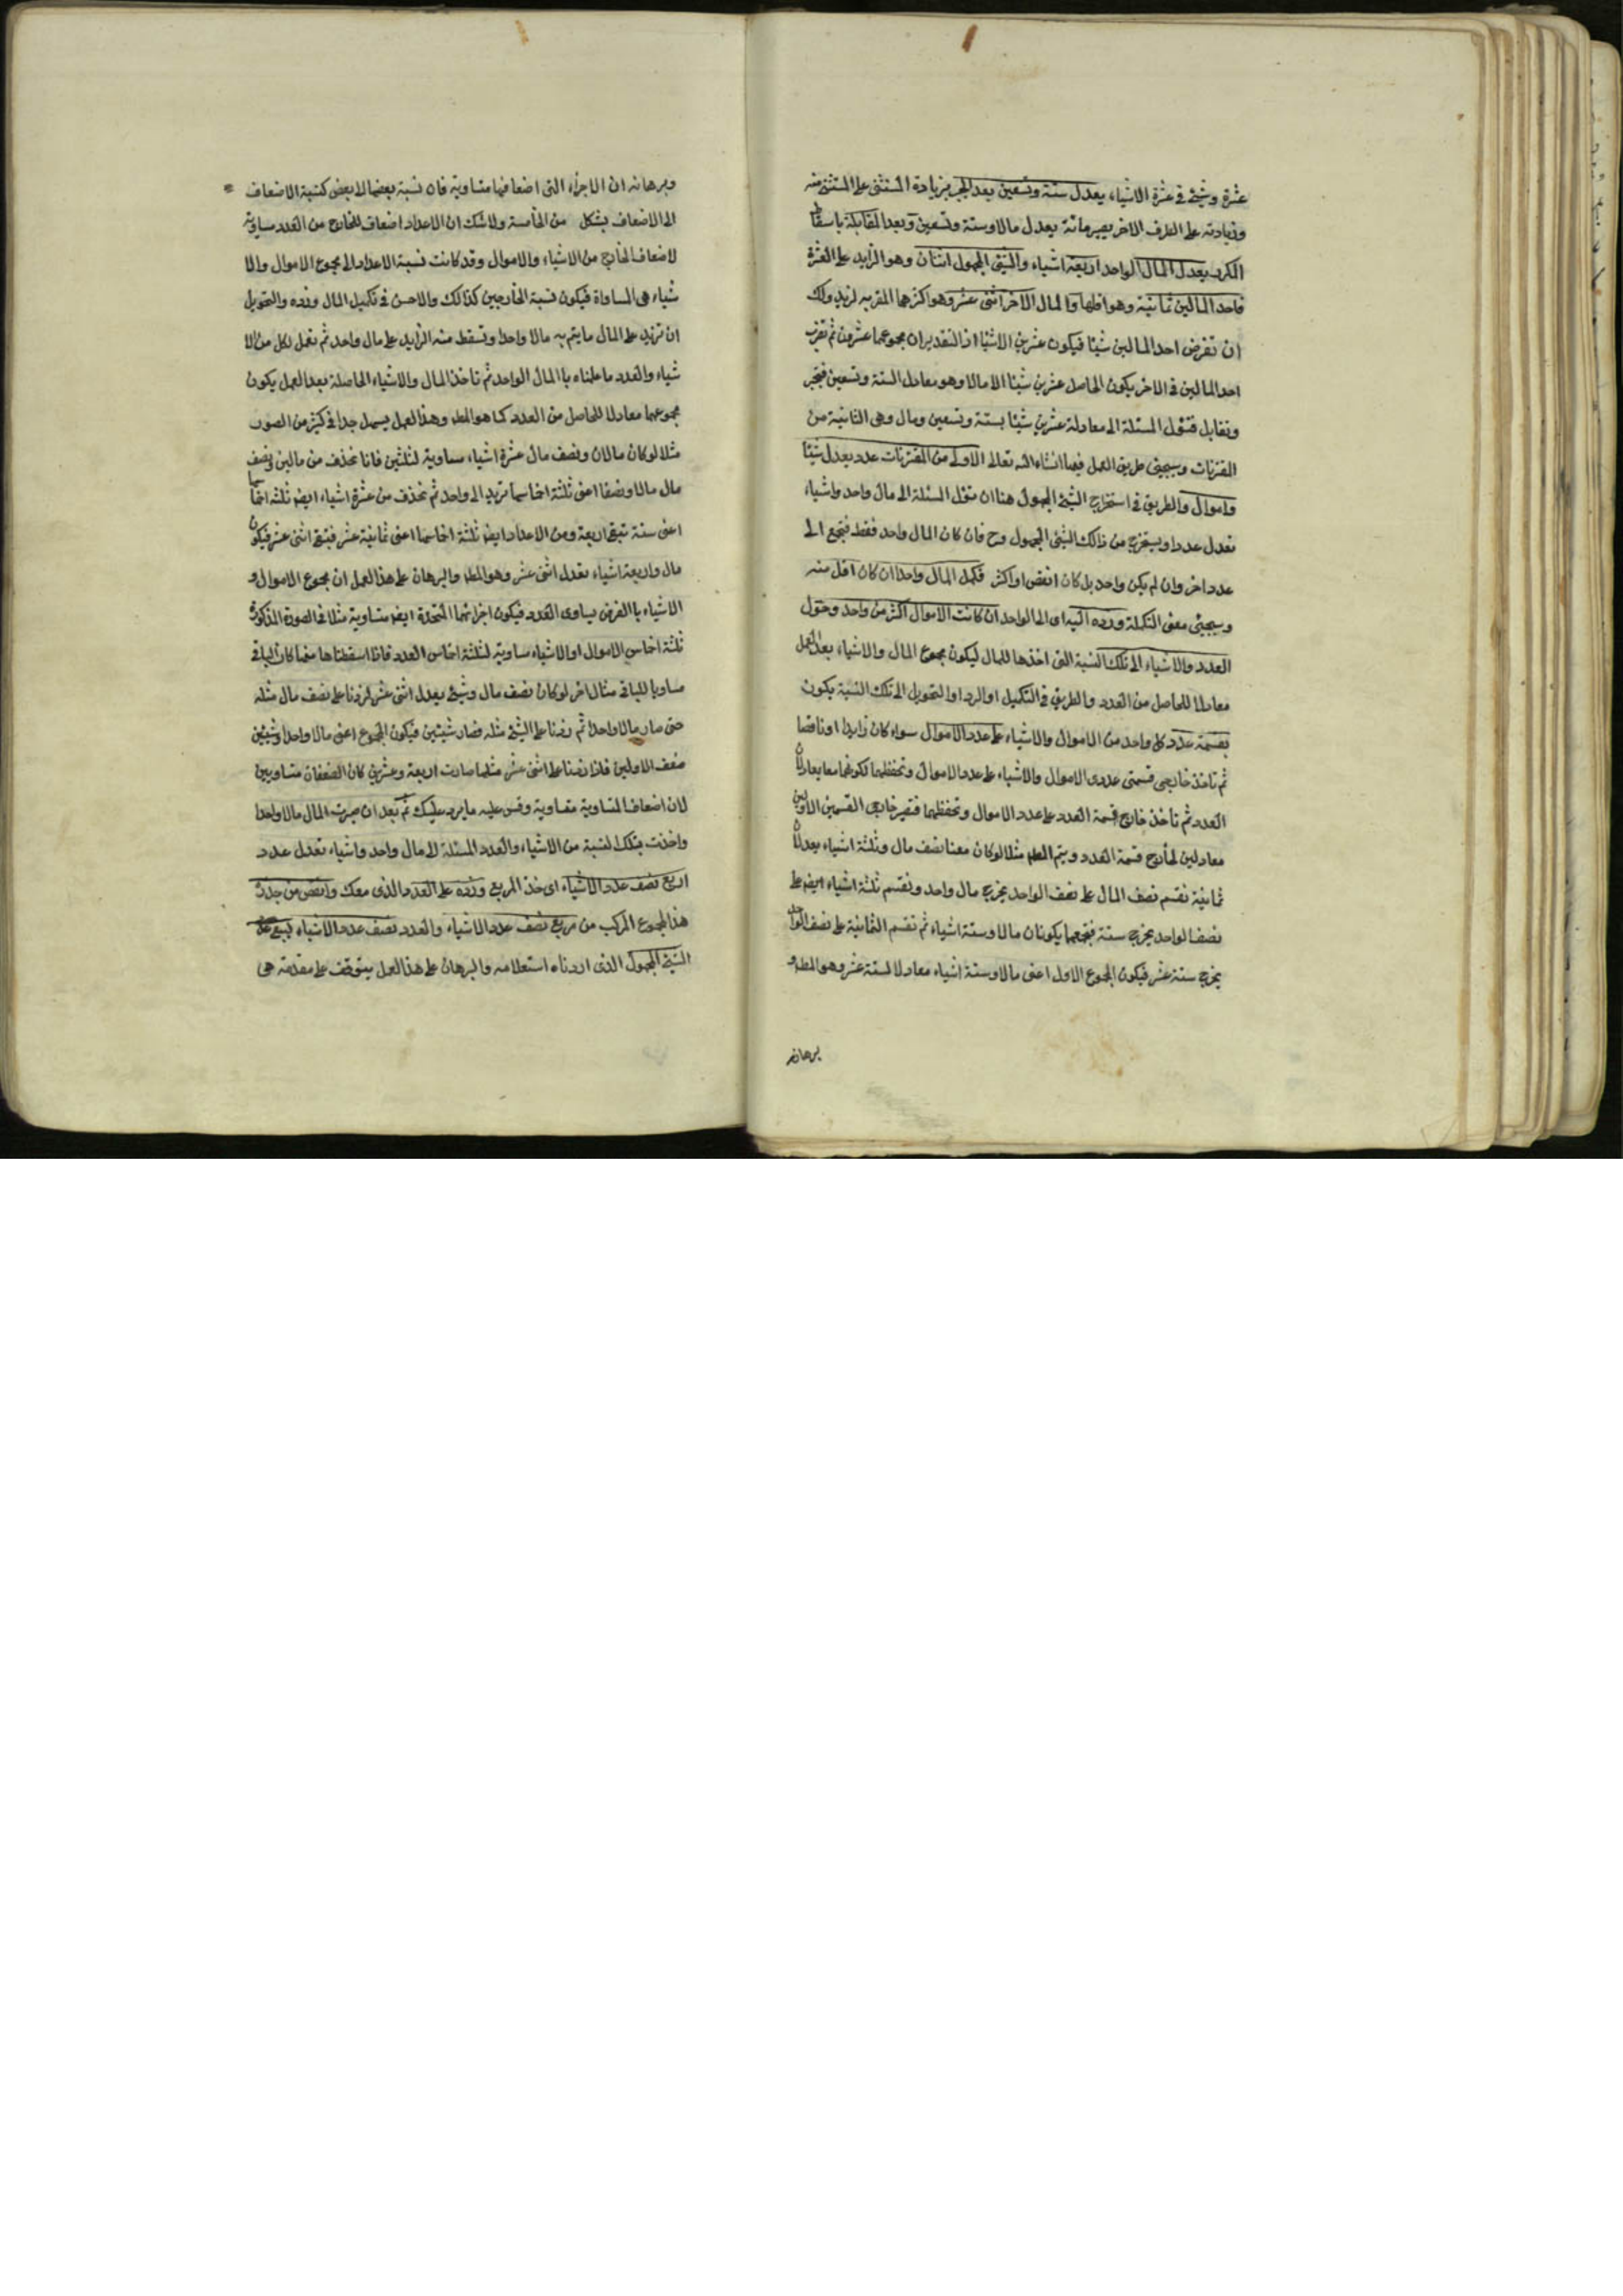 عشرة وشيئ في عشرة الاشياء يعدل ستة وتسعين بعد الجبر بزيادة المستثنى على المستثنى منه
وزيادته على الطرف الاخر يصير مائة يعدل مالا وستة وتسعين وبعد المقابلة باسقاط
المكرر يعدل المال الواحد اربعة اشياء والشئ المجهول اثنان وهو الزايد على العشرة
فاحد المالين ثمانية وهو اقلها والمال الاخر اثنى عشر وهو اكثرهما المقر به لزيد ولك
ان تفرض احد المالين شيئا فيكون عشرين الا شيئا اذ التقدير ان مجموعهما عشرون ثم تضرب
احد المالين في الاخر يكون الحاصل عشرين شيئا الا مالا وهو معادل الستة وتسعين فتجبر
وتقابل فتؤل المسئلة الى معادلة عشرين شيئا بستة وتسعين ومال وهى الثانية من
المقترنات وسيجيئ طريق العمل فيها انشاء الله تعالى الاولى من المقترنات عدد يعدل شيئا
واموال والطريق في استخراج الشئ المجهول هنا ان تؤل المسئلة الى مال واحد واشياء
تعدل عددا ويستخرج من ذالك الشئ المجهول وح فان كان المال واحد فقط فتجمع الى
عدد اخر وان لم يكن واحد بل كان انقص او اكثر فكمل المال واحدا ان كان اقل منه
وسيجيئ معنى التكملة ورده اليه اى الى الواحد ان كانت الاموال اكثر من واحد وحول
العدد والاشياء الى تلك النسبة التى اخذها للمال ليكون مجموع المال والاشياء بعد العمل
معادلا للحاصل من العدد والطريق في التكميل او الرد او التحويل الى تلك النسبة يكون
بقسمة عدد كل واحد من الاموال والاشياء على عدد الاموال سواء كان زايدا او ناقصا
ثم تاخذ خارجى قسمتى عددى الاموال والاشياء على عدد الاموال وتحفظهما لكونهما معا يعادلان
العدد ثم تاخذ خارج قسمة العدد على عدد الاموال وتحفظهما فتصير خارجى القسمين الاولين
معادلين لخارج قسمة العدد ويتم المط مثلا لو كان معنا نصف مال وثلثة اشياء يعدلان
ثمانية نقسم نصف المال على نصف الواحد يخرج مال واحد ونقسم ثلثة اشياء ايض على
نصف الواحد يخرج ستة فنجمعهما يكونان مالا وستة اشياء ثم نقسم الثمانية على نصف الواحد
يخرج ستة عشر فيكون المجموع الاول اعنى مالا وستة اشياء معادلا لستة عشر وهو المط و
برهانه
وبرهانه ان الاجزاء التى اضعافها متساوية فان نسبة بعضها الى بعض كنسبة الاضعاف
الى الاضعاف بشكل من الخامسة ولا شك ان الاعداد اضعاف للخارج من العدد مساوية
لاضعاف الخارج من الاشياء والاموال وقد كانت نسبة الاعداد الى مجموع الاموال والا
شياء هى المساواة فيكون نسبة الخارجين كذالك والاحسن في تكميل المال ورده والتحويل
ان تزيد على المال ما يتم به مالا واحدا وتسقط منه الزايد على مال واحد ثم تعمل لكل من الا
شياء والعدد ما عملناه باالمال الواحد ثم تاخذ المال والاشياء الحاصلة بعد العمل يكون
مجموعهما معادلا للحاصل من العدد كما هو المط وهذا العمل يسهل جدا في كثير من الصور
مثلا لو كان مالان ونصف مال عشرة اشياء مساوية لثلثين فانا نحذف من مالين ونصف
مال مالا ونصفا اعنى ثلثة اخماسها تريد الى واحد ثم نحذف من عشرة اشياء ايض ثلثة اخماسها
اعنى ستة تبقى اربعة ومن الاعداد ايض ثلثة اخماسها اعنى ثمانية عشر فيبقى اثنى عشر فيكون
مال واربعة اشياء يعدل اثنى عشر وهو المط والبرهان على هذا العمل ان مجموع الاموال و
الاشياء باالفرض يساوى العدد فيكون اجزائهما المتحدة ايض متساوية مثلا في الصورة المذكورة
ثلثة اخماس الاموال او الاشياء مساوية لثلثة اخماس العدد فاذا اسقطناها منهما كان الباقى
مساويا للباقى مثال اخر لو كان نصف مال وشيئ يعدل اثنى عشر لزدنا على نصف مال مثله
حتى صار مالا واحدا ثم زدنا على الشئ مثله فصار شيئين فيكون المجموع اعنى مالا واحدا وشيئين
ضعف الاولين فاذا زدنا على اثنى عشر مثلها صارت اربعة وعشرين كان الضعفان متساويين
لان اضعاف المتساوية متساوية وقس عليه ما يرد عليك ثم بعد ان صيرت المال مالا واحدا
واخذت بتلك النسبة من الاشياء والعدد المسئلة الى مال واحد واشياء تعدل عدد
اربع نصف عدد الاشياء اى خذ المربع وزده على العدد الذى معك وانقص من جذر
هذا المجموع المركب من مربع نصف عدد الاشياء والعدد نصف عدد الاشياء ليبقى عدد
الشئ المجهول الذى اردناه استعلامه والبرهان على هذا العمل يتوقف على مقدمة هى